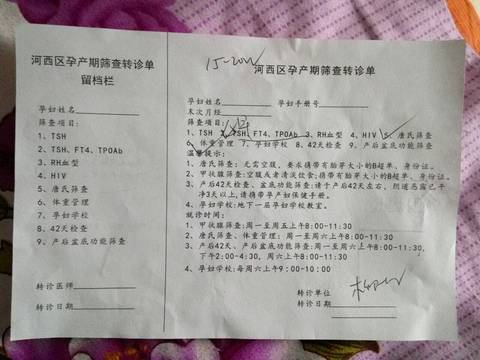 河西区孕产期筛查转诊单
留档栏
孕妇姓名
筛查项目:
1、TSH
2、TSH、FT4、TPOAb
3、RH血型
4、HIV
5、唐氏筛查
6、体重管理
7、孕妇学校
8、42天检查
9、产后盆底功能筛查
转诊医师
转诊日期
15-20W
河西区孕产期筛查转诊单
孕妇姓名 孕妇手册号
末次月经
筛查项目:
1、TSH 2、TSH、FT4、TPOAb 3、RH血型 4、HIV 5、唐氏筛查
6、体重管理 7、孕妇学校 8、42天检查 9、产后盆底功能筛查
温馨提示:
1、唐氏筛查:无需空腹,要求携带有胎芽大小的B超单、身份证。
2、甲状腺筛查:空腹或者清淡饮食;携带有胎芽大小的B超单、身份证。
3、产后42天检查、盆底功能筛查:请于产后42天左右,阴道恶露已干
净3天以上,请携带孕产妇保健手册。
4、孕妇学校:地下一层孕妇学校教室。
就诊时间:
1、甲状腺筛查:周一至周五上午8:00-11:30
2、唐氏筛查、体重管理:周一至周六上午8:00-11:30
3、产后42天、产后盆底功能筛查:周一至周五上午8:00-11:30,
下午2:00-4:30,周六上午8:00-11:30
4、孕妇学校:每周六上午9:00-10:00
转诊单位
转诊日期